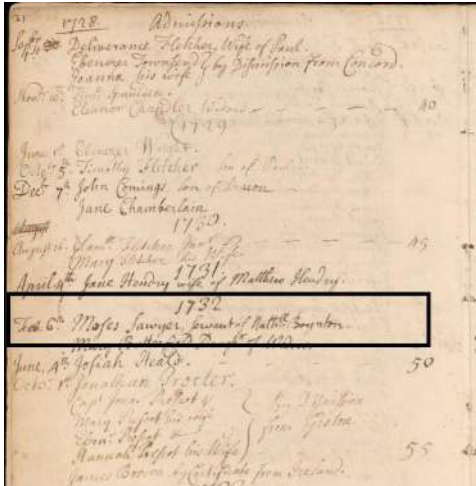 21 1728. Admissions.
Deliverance Fletcher, Wife of Paul.
Ebenezer Townsend & by Dismission from Concord.
Joanna his wife
Eleanor Chandler 40
1729
June Ebenezer Wright.
Octobr 5th Timothy Fletcher Son of Paul
Decr 7th John Comings, son of Deacon
Jane Chamberlain
1730.
August Fletcher 45
Mary Fletcher his Wife
1731
April 4th Jane Hendry wife of Matthew Hendry.
1732
Feb. 6th Moses Sawyer, servant of Nathll. Boynton.
Mary Butterfield Daughr of Widow
June, 4th Josiah Heald. 50
Octor. 1st Jonathan Procter.
Capt Jonas Prescot
Mary Prescot his wife by Dismission
Ebenr Prescot from Groton
Hannah Prescot his Wife 55
James Brown by Certificate from Ireland.